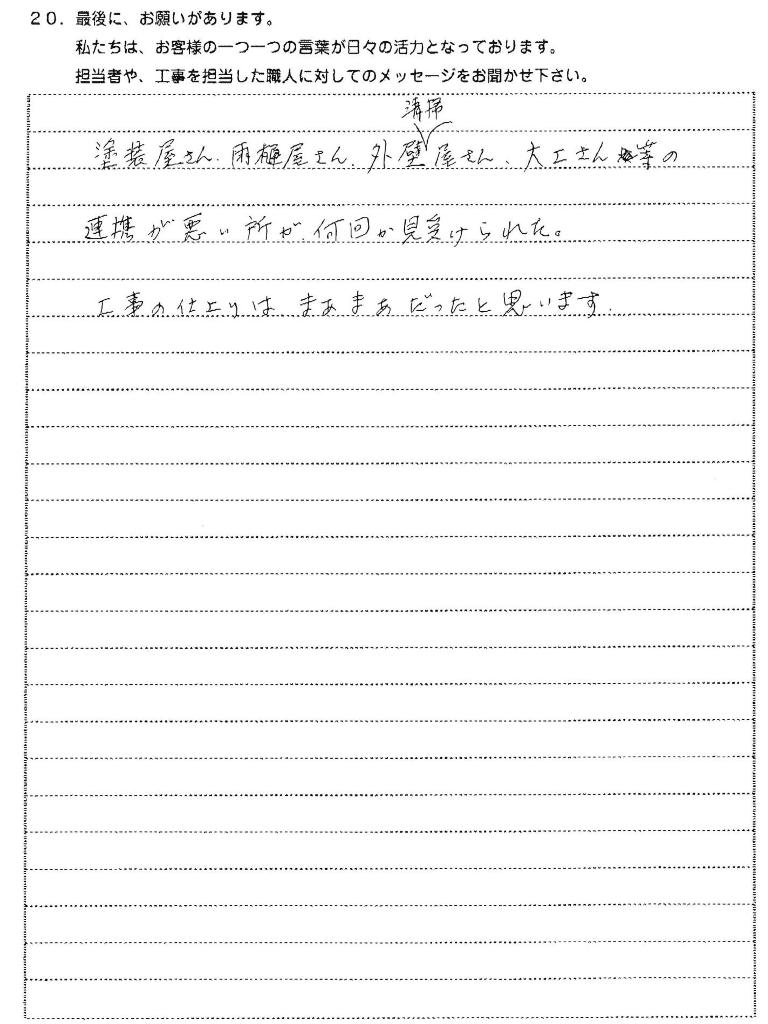 20. 最後に、お願いがあります。
私たちは、お客様の一つ一つの言葉が日々の活力となっております。
担当者や、工事を担当した職人に対してのメッセージをお聞かせ下さい。
清掃
塗装屋さん、雨樋屋さん、外壁屋さん、大工さん等の
連携が悪い所が、何回か見受けられた。
工事の仕上りは、まあまあだったと思います。